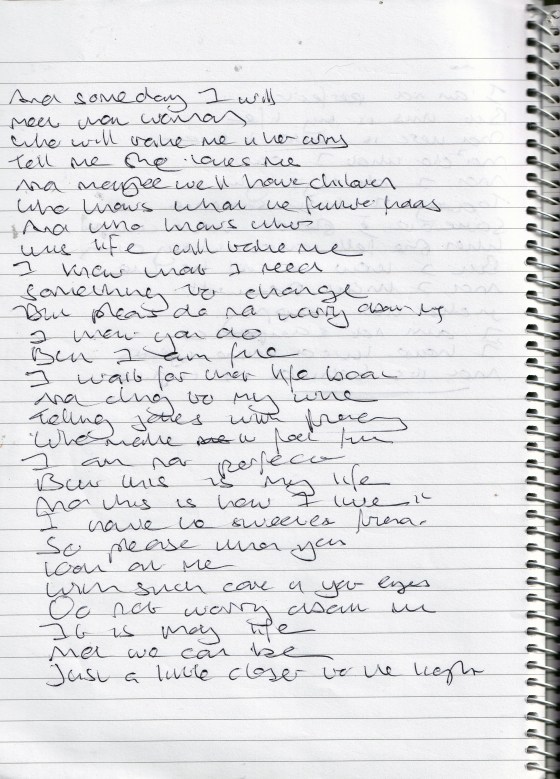 And someday I will
meet that woman
Who will take me when
Tell me she loves me
And maybe we'll have children
Who knows what the future has
And who knows where
this life will take me
I know that I need
something to change
But please do not worry about me
I know you do
But I am fine
I wait for that life boat
And cling to my wine
Telling jokes with
Who make me feel
I am not perfect
But this is my life
And this is how I live it
I have to
So please when you
look at me
With such care in your eyes
Do not worry about me
It is my life
And we can be
Just a little closer to the light